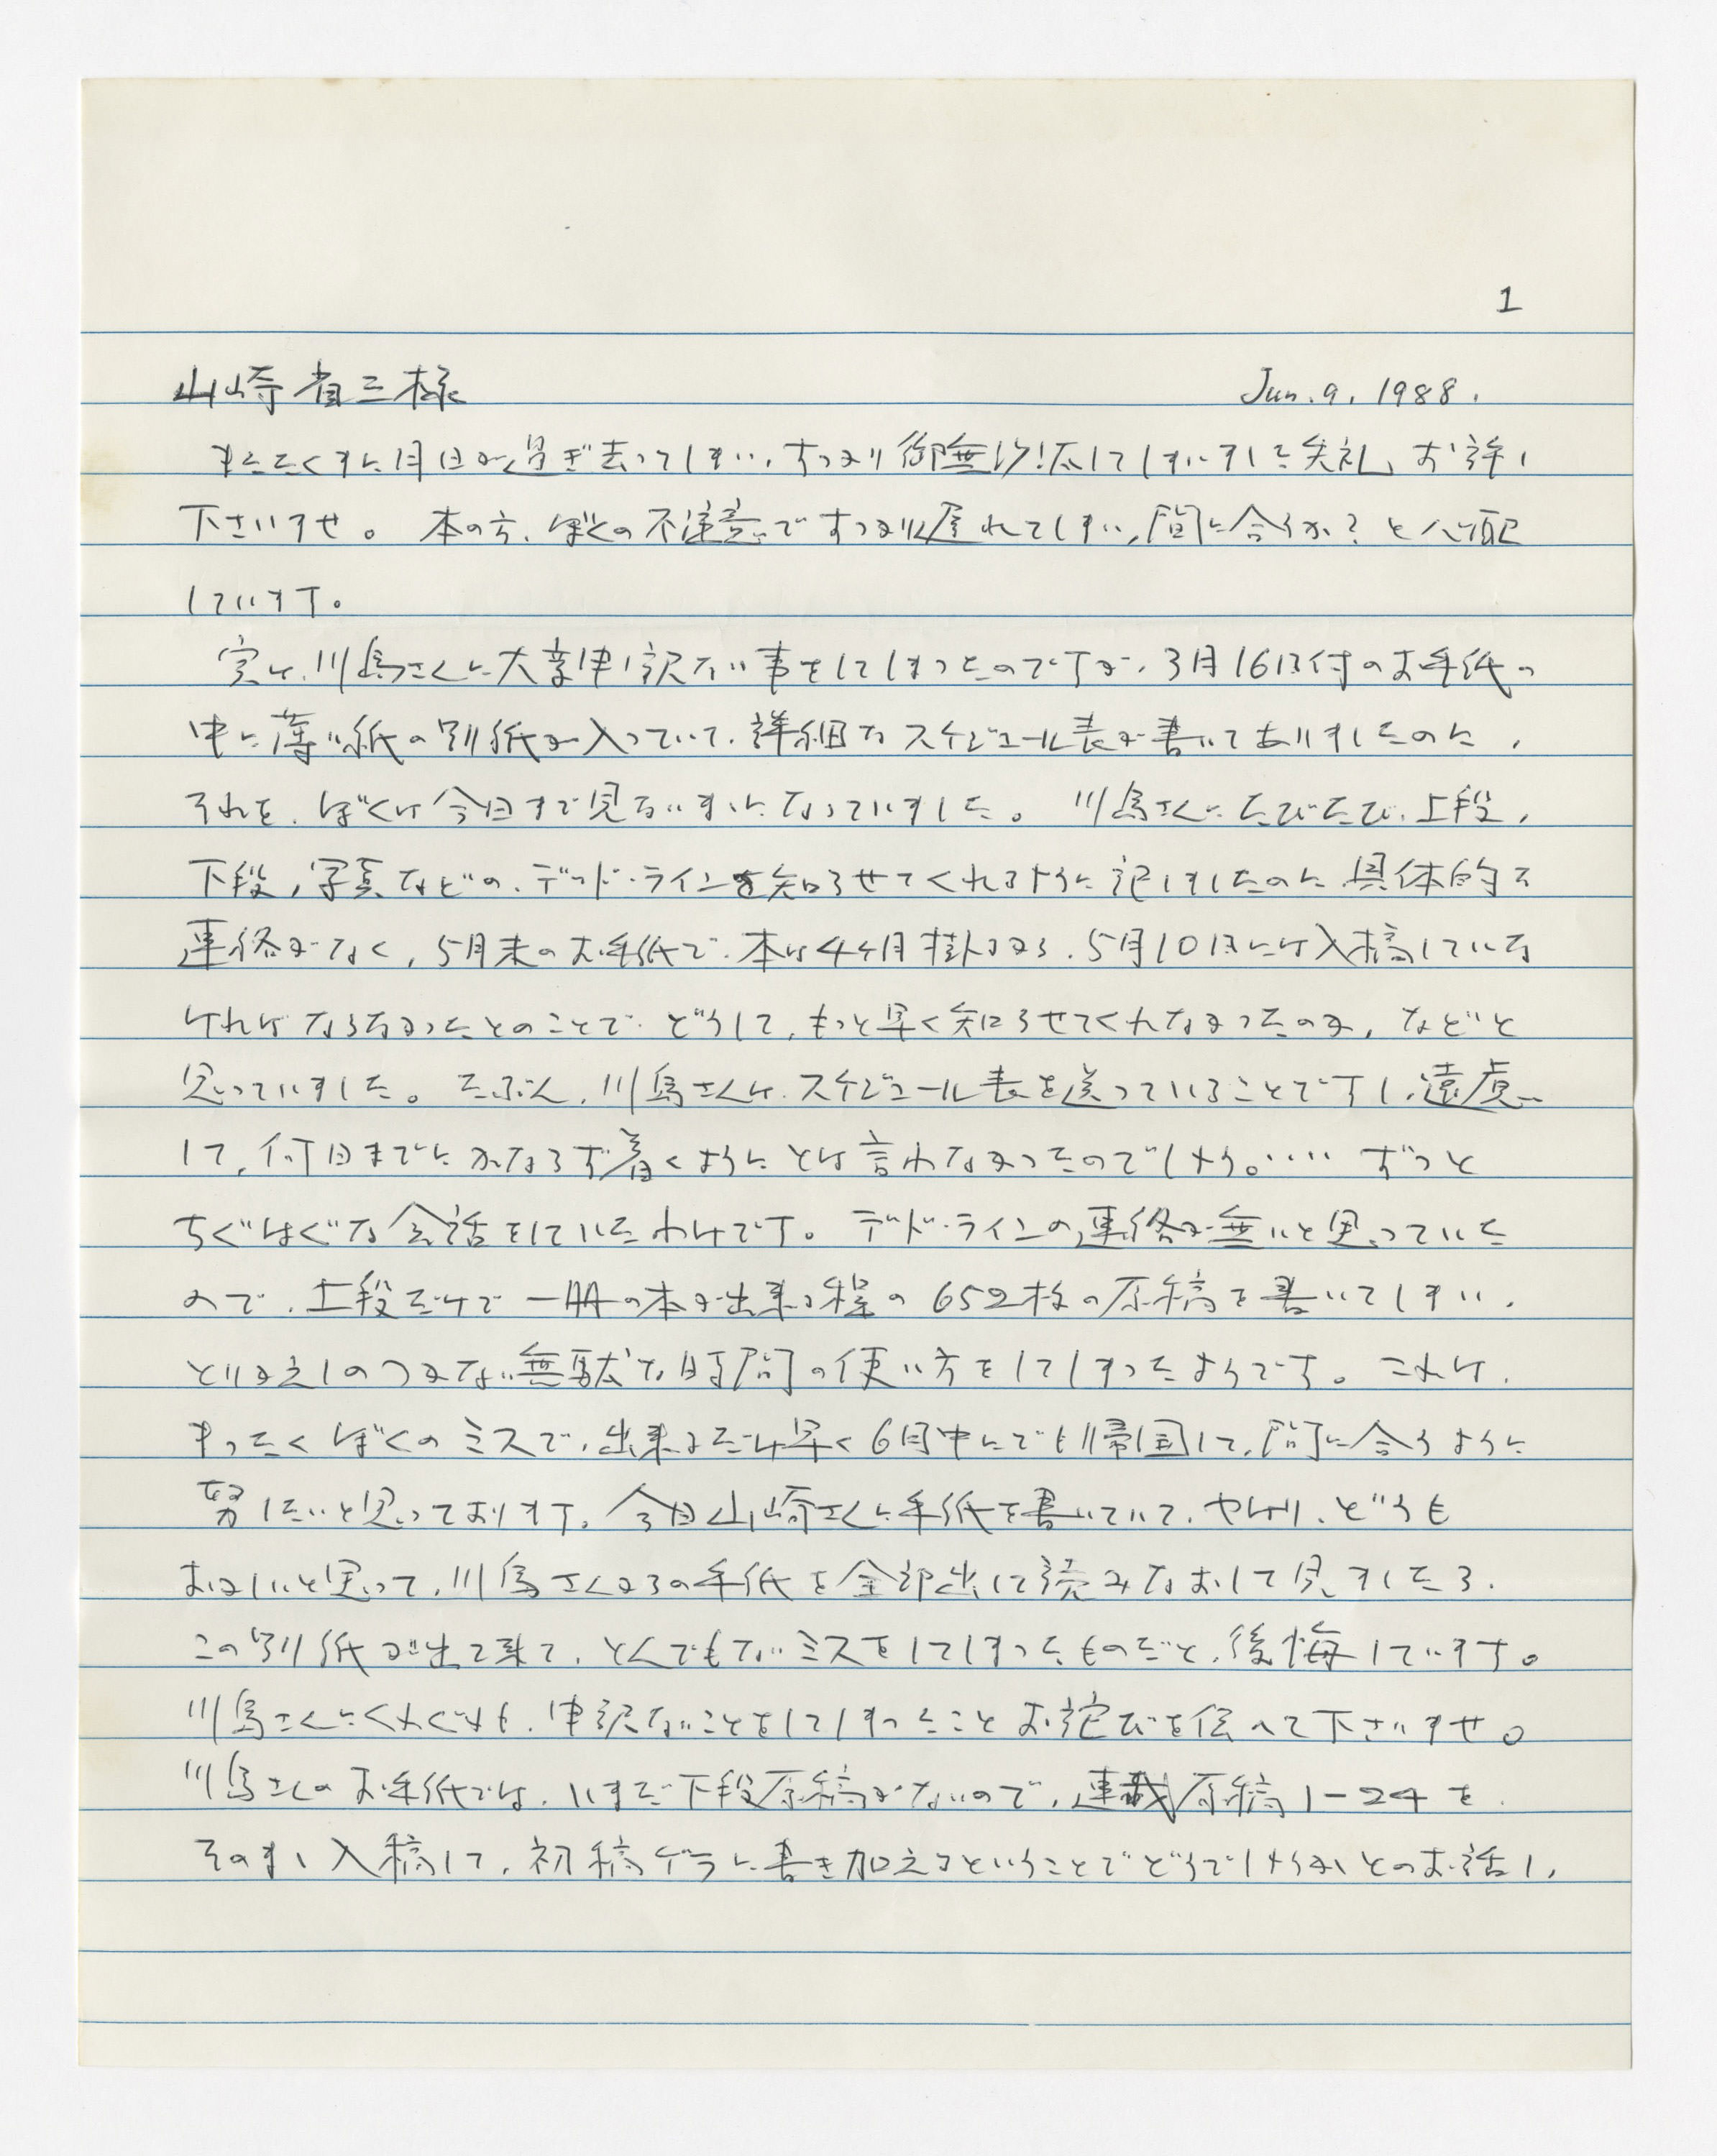 1
山崎省三様 Jun. 9, 1988.
またたくまに月日が過ぎ去ってしまい、すっかり御無沙汰してしまいました失礼、お許し
下さいませ。 本の方、ぼくの不注意ですっかり遅れてしまい、間に合うか？と心配
しています。
実は、川島さんに大変申し訳ない事をしてしまったのですが、3月16日付のお手紙の
中に薄い紙の別紙が入っていて、詳細なスケジュール表が書いてありましたのに、
それを、ぼくは今日まで見ないままになっていました。 川島さんにたびたび、上段、
下段、写真などの、デッド・ラインを知らせてくれるように記しましたのに具体的な
連絡がなく、5月末のお手紙で、本は4ヶ月掛るから、5月10日には入稿していな
ければならなかったとのことで、どうして、もっと早く知らせてくれなかったのか、などと
思っていました。たぶん、川島さんは、スケジュール表を送っていることですし、遠慮
して、何日までにかならず着くようにとは言わなかったのでしょう。‥‥ ずっと
ちぐはぐな会話をしていたわけです。 デッド・ラインの連絡が無いと思っていた
ので、上段だけで一冊の本が出来る程の652枚の原稿を書いてしまい、
とりかえしのつかない無駄な時間の使い方をしてしまったようです。これは、
まったくぼくのミスで、出来るだけ早く6月中にでも帰国して、間に合うように
努したいと思っております。今日山崎さんに手紙を書いていて、やはり、どうも
おかしいと思って、川島さんからの手紙を全部出して読みなおして見ましたら、
この別紙が出て来て、とんでもないミスをしてしまったものだと、後悔しています。
川島さんにくれぐれも、申訳ないことをしてしまったことお詫びを伝へて下さいませ。
川島さんのお手紙では、いまだ下段原稿がないので、連載原稿1-24を
そのまゝ入稿して、初稿ゲラに書き加えるということでどうでしょうかとのお話し、